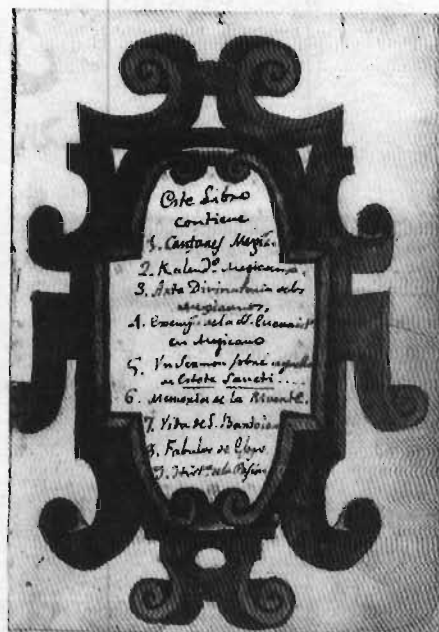 Este Libro
contiene
1. Cantares Mexic.
2. Kalend.º Mexicano.
3. Arte Divinatoria de los
Mexicanos.
4. Exemp. de la SS. Eucarist.
en Mexicano
5. Vn Sermon sobre aquello
de Estote Sancti....
6. Memoria de la Muerte.
7. Vida de S. Bartolom
8. Fabulas de Esopo
9. Hist.ª de la Pasion